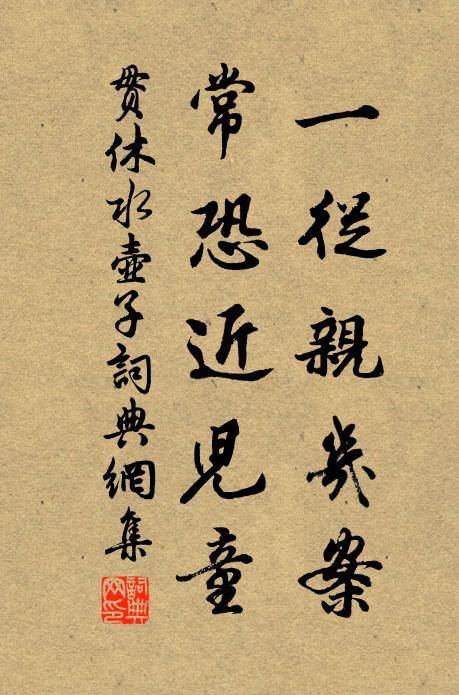 一從親幾案
常恐近兒童
貫休水壺子詞典網集
詞典网印